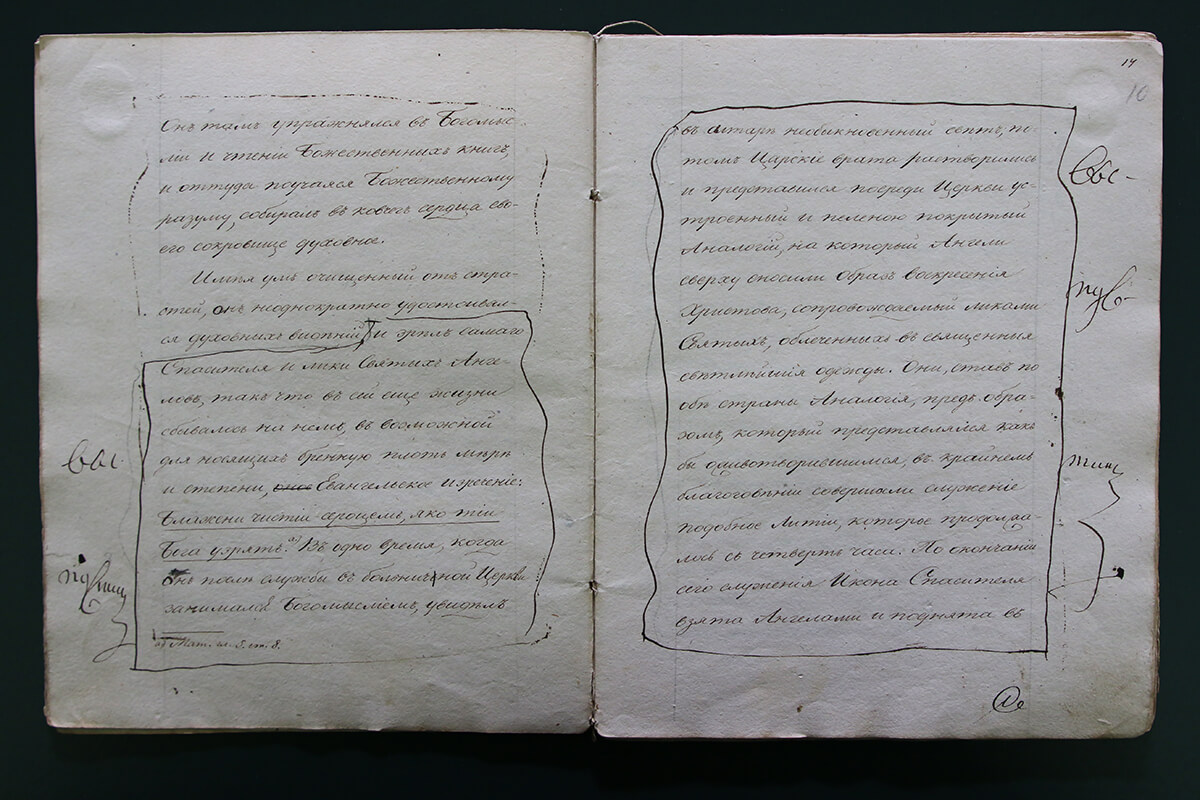 Онъ тамъ упражнялся въ Богомыс-
ліи и чтеніи Божественныхъ книгъ,
и оттуда поучаясь Божественному
разуму, собиралъ въ ковчегъ сердца сво-
его сокровище духовное.
Имѣя умъ очищенный отъ стра-
стей, онъ неоднократно удостоивал-
ся духовныхъ видѣній, и зрѣлъ самаго
Спасителя и лики Святыхъ Анге-
ловъ, такъ что въ сей еще жизни
сбывалось на немъ, въ возможной
для носящихъ бренную плоть мѣрѣ
и степени, Евангельское изреченіе:
Блажени чистіи сердцемъ, яко тіи
Бога узрятъ. а) Въ одно время, когда
онъ послѣ службы въ больничной Церкви
занимался Богомысліемъ, увидѣлъ
а) Мат. гл. 5. ст. 8.
ввс.
14
10
въ алтарѣ необыкновенный свѣтъ, по-
томъ Царскіе врата растворились
и представился посреди Церкви ус-
троенный и пеленою покрытый
Аналогій, на который Ангели
сверху сносили образъ воскресенія
Христова, сопровождаемый ликами
Святыхъ, облеченныхъ въ священныя
свѣтлѣйшія одежды. Они, ставъ по
обѣ страны Аналогія, предъ обра-
зомъ, который представлялся какъ
бы одивотворившимся, въ крайнемъ
благоговѣніи совершали служеніе
подобное Литіи, которое продолжа-
лось съ четверть часа. По окончаніи
сего служенія Икона Спасителя
взята Ангелами и поднята въ
ввс.